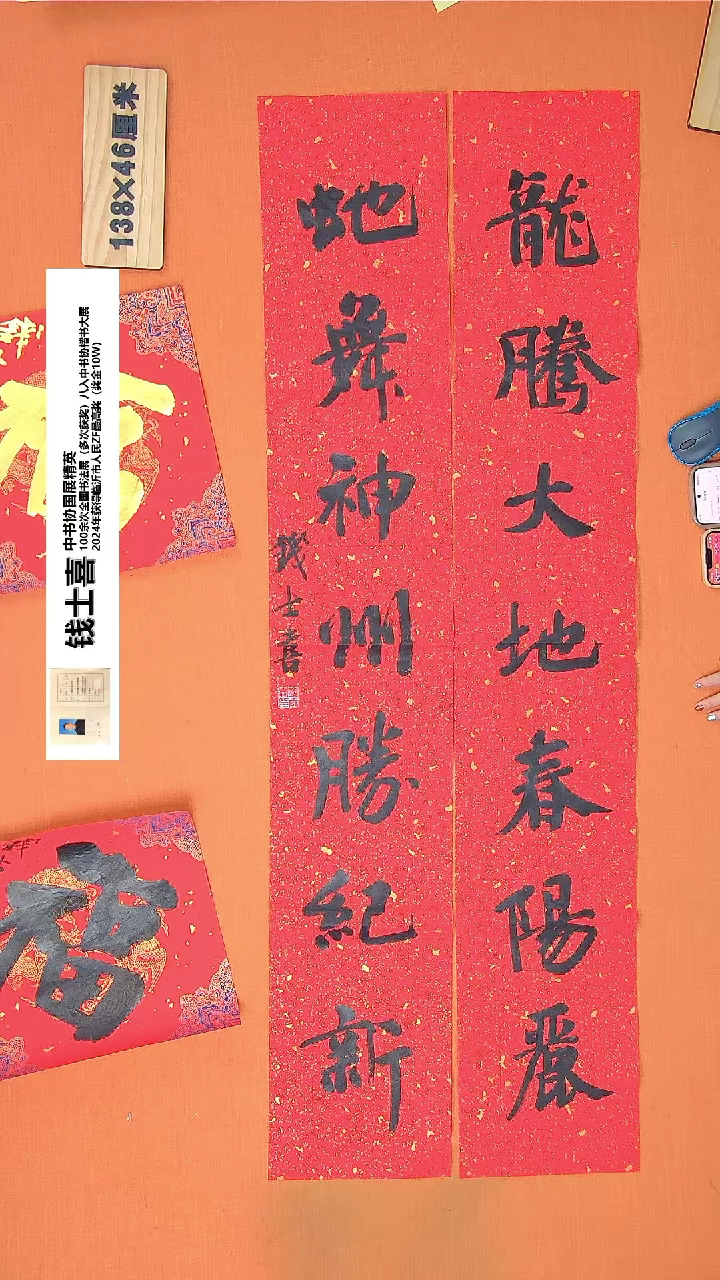 龍騰大地春陽麗
蛇舞神州勝紀新
錢士喜
138×46厘米
钱士喜 中书协国展精英
100余次全国书法展（多次获奖）八入中书协楷书大展
2024年获得临沂市人民ZF最高奖（奖金10W）
福